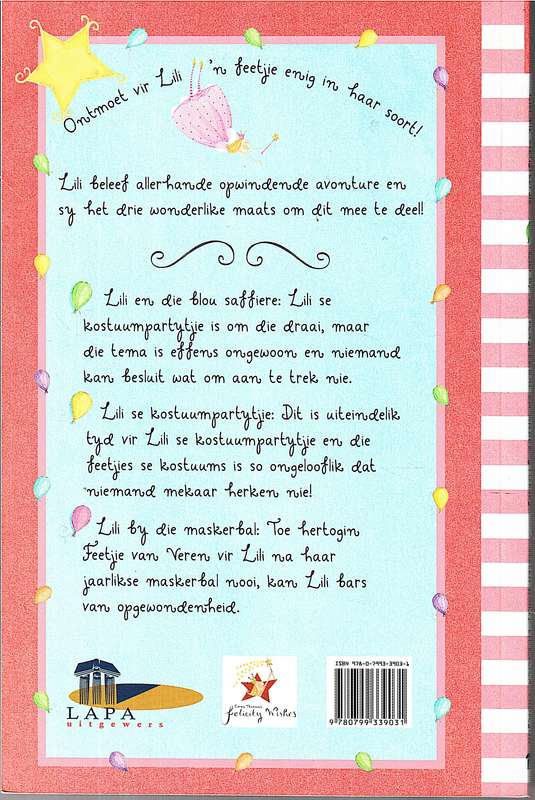 Ontmoet vir Lili 'n feetjie enig in haar soort!
Lili beleef allerhande opwindende avonture en
sy het drie wonderlike maats om dit mee te deel!
Lili en die blou saffiere: Lili se
kostuumpartytjie is om die draai, maar
die tema is effens ongewoon en niemand
kan besluit wat om aan te trek nie.
Lili se kostuumpartytjie: Dit is uiteindelik
tyd vir Lili se kostuumpartytjie en die
feetjies se kostuums is so ongelooflik dat
niemand mekaar herken nie!
Lili by die maskerbal: Toe hertogin
Feetjie van Veren vir Lili na haar
jaarlikse maskerbal nooi, kan Lili bars
van opgewondenheid.
LAPA
uitgewers
Emma Thomson's
Felicity Wishes
ISBN 978-0-7993-3903-1
9 780799 339031